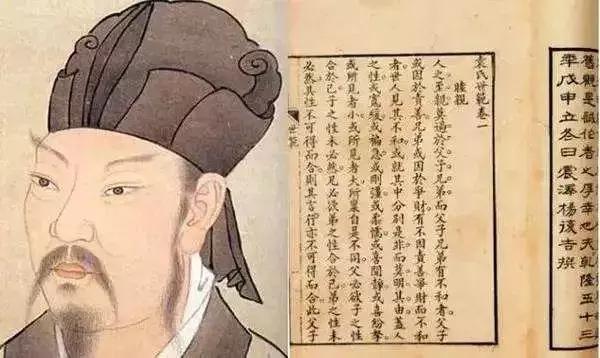 舊觀是誠伯者之厚幸也夫乾隆五十三
秊戊申立冬日震澤楊復吉撰
袁氏世範卷一
睦親
人之至親莫過於父子兄弟而父子兄弟有不和者父子
或因於責善兄弟或因於爭財有不因責善爭財而不和
者世人見其不和或就其中分別是非而莫明其由蓋人
之性或寬緩或褊急或剛或柔懦或喜閒靜或喜紛拏
或所見者小或所見者大所稟自是不同父必欲子之性
合於己子之性未必然兄必欲弟之性合於己弟之性未
必然其性不可得而合則其言行亦不可得而合此父子
世範